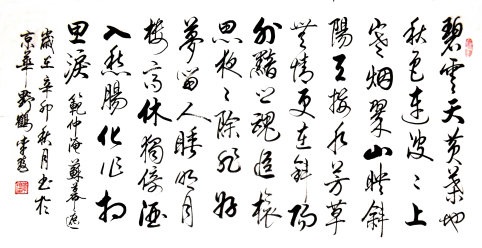 碧雲天黄葉地
秋色連波々上
寒烟翠山映斜
陽天接水芳草
無情更在斜陽
外黯鄉魂追旅
思夜々除非好
夢留人睡明月
樓高休獨倚酒
入愁腸化作相
思淚 範仲淹蘇幕遮
歲在辛卯秋月書於
京華野鶴